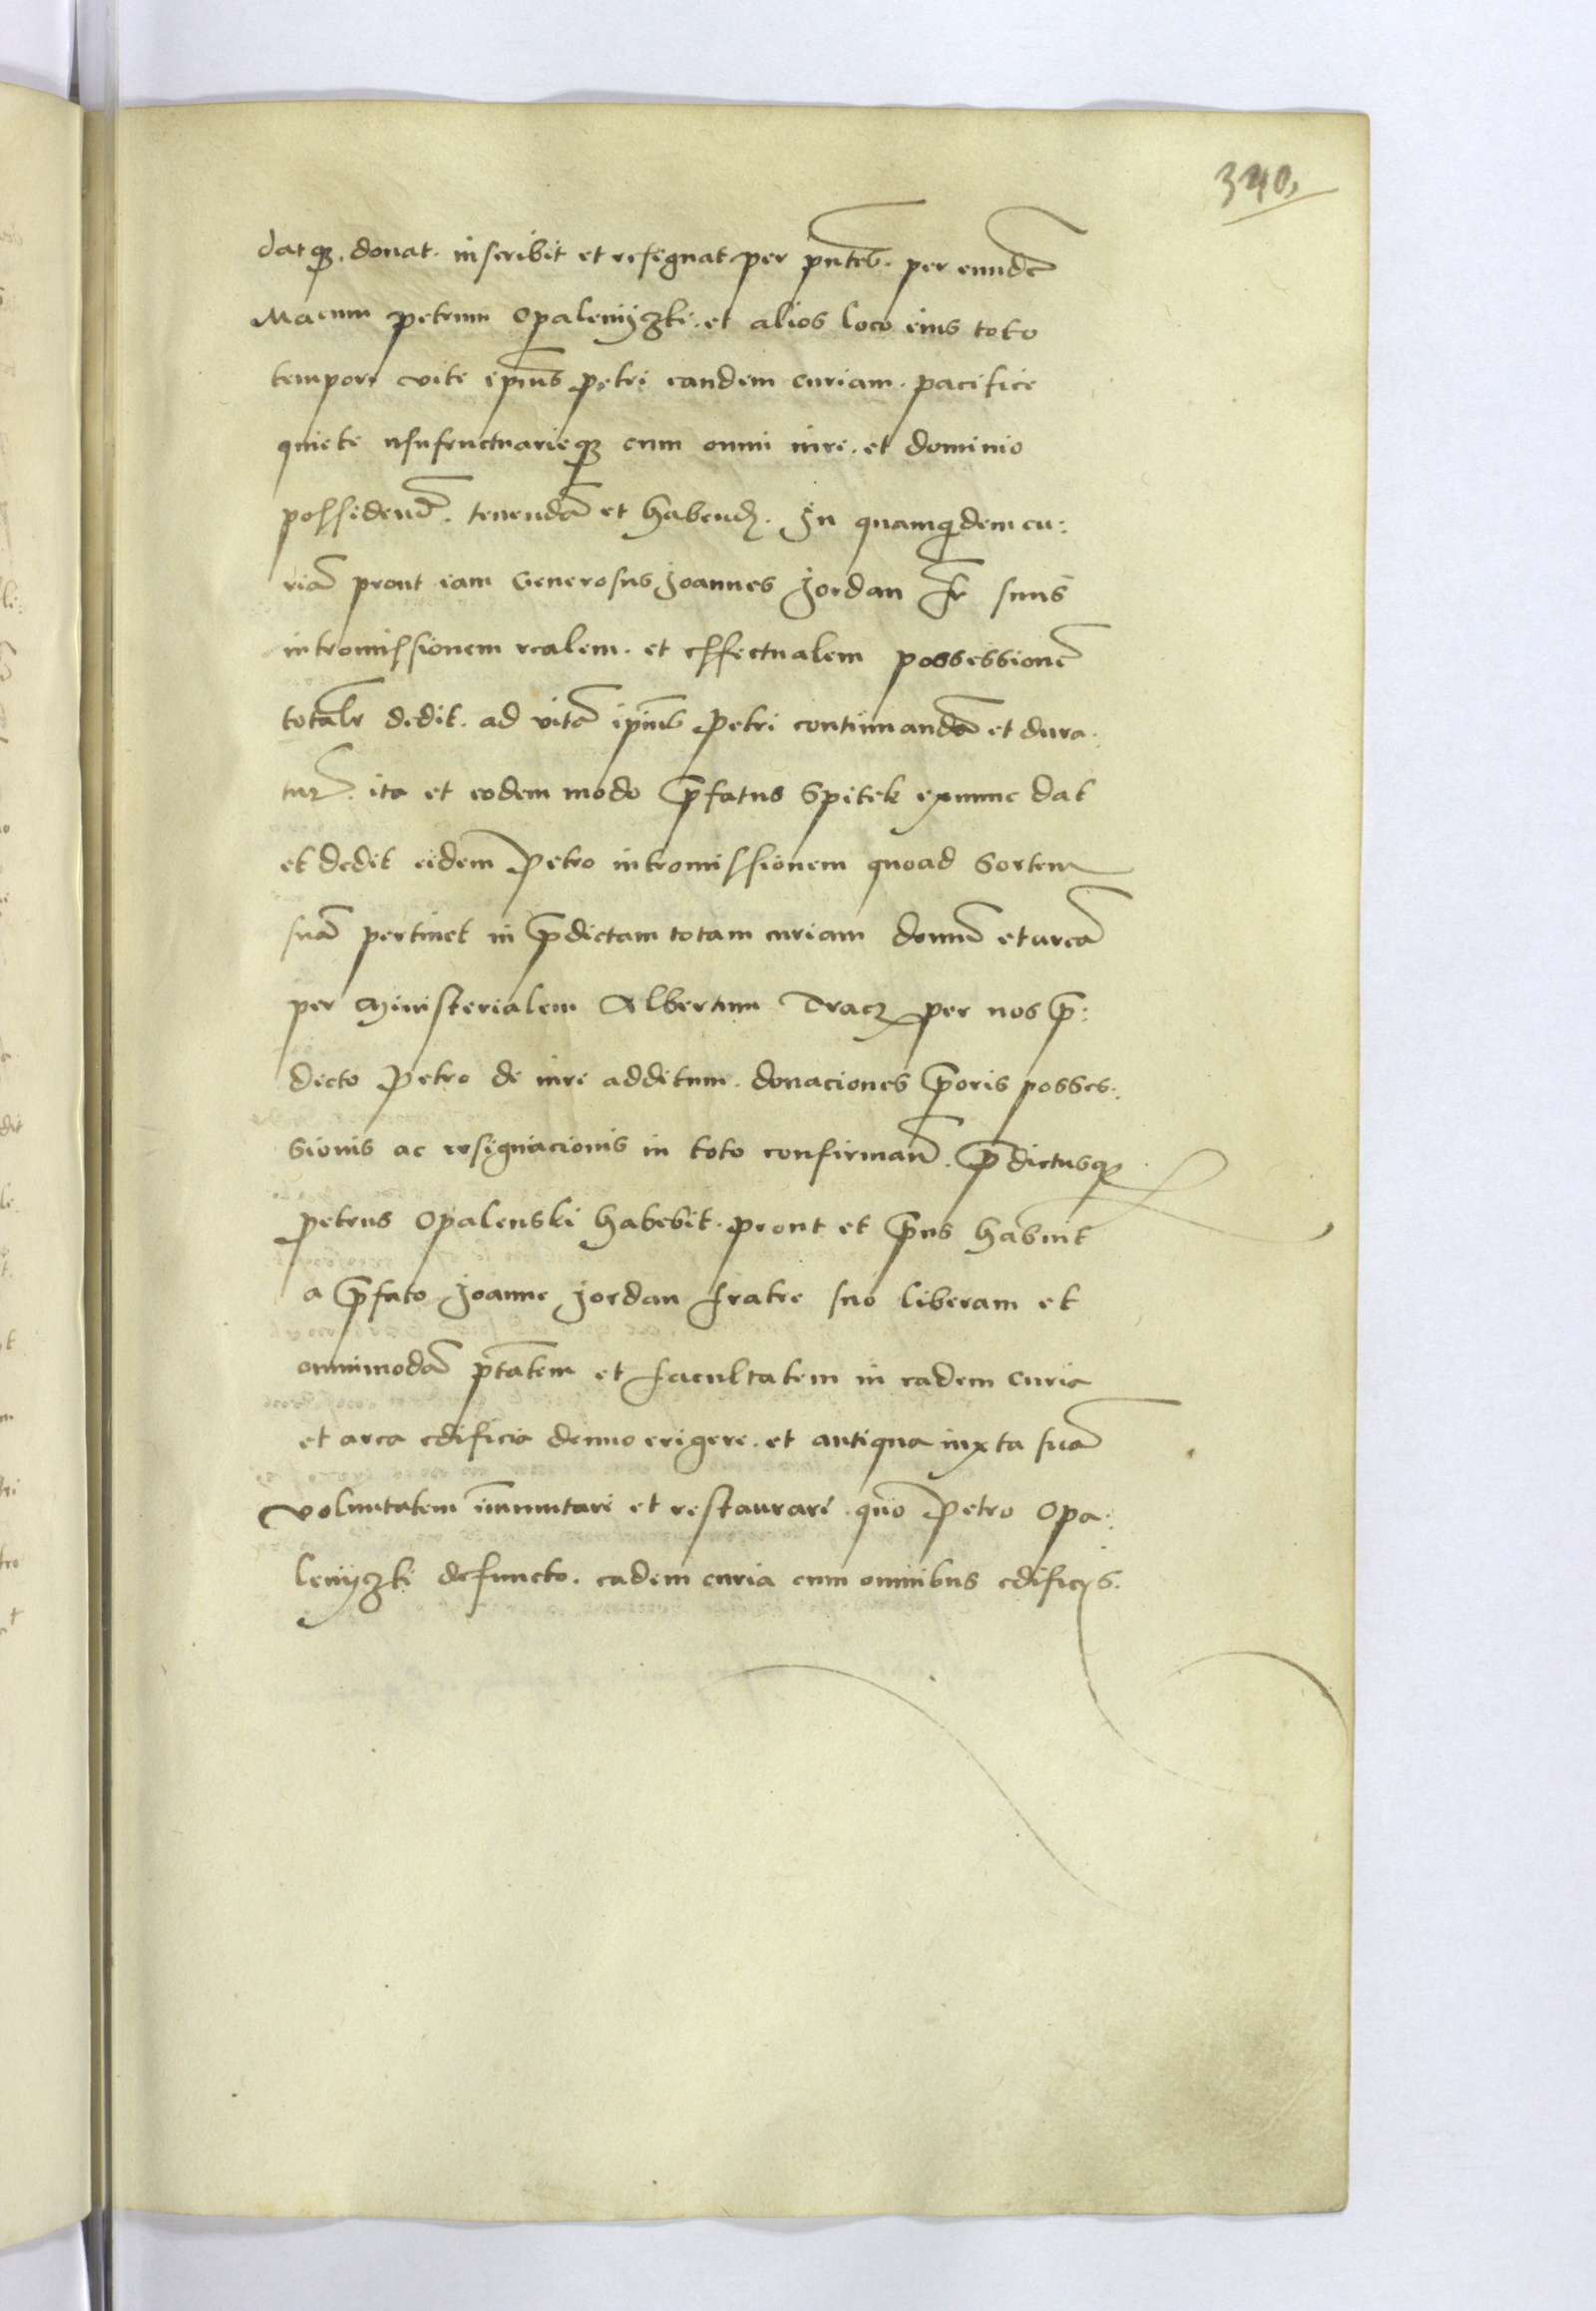 340
datq₃. donat. inscribit et resignat per pn̄tes. per eundē
Macum petrum Opalenyczki. et alios loco eius toto
tempore vite ipius Petri eandem curiam. pacifice
quiete usufructuarieq₃ cum omni iure. et dominio
possidend̄. tenendā et habend̄. Jn quamquidem cu:
riā prout iam Generosus Joannes Jordan Fr̄ suus
intromissionem realem. et effectualem possessionē
totalr̄ dedit. ad vitā ipius Petri continuandā et dura:
tur̄. ita et eodem modo p̄fatus Spitek exnunc dat
et dedit eidem Petro intromissionem quoad sortem
suā pertinet in p̄dictam totam curiam domū et areā
per Ministerialem Albertum Dracz per nos p̄:
dicto Petro de iure additum. donaciones p̄oris posses:
sionis ac resignacionis in toto confirman̄. p̄dictusq₃
Petrus Opalenski habebit. prout et p̄us habuit
a p̄fato Joanne Jordan fratre suo liberam et
omnimodā ptātem et facultatem in eadem curia
et area edificia denuo erigere. et antiqua iuxta suā
voluntatem īmmutare et restaurare. quo Petro Opa:
lenyczki defuncto. eadem curia cum omnibus edificys.